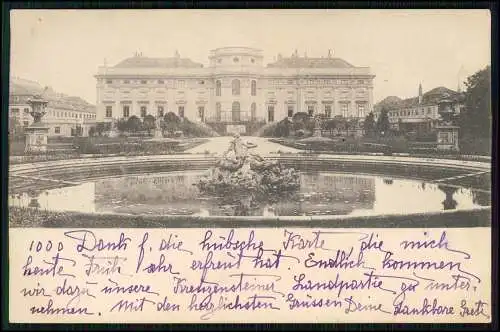 1000 Dank f. die hübsche Karte die mich
heute Früh sehr erfreut hat. Endlich kommen
wir dazu unsere Kreuzensteiner Landpartie zu unter-
nehmen. Mit den herzlichsten Grüssen Deine dankbare Grete